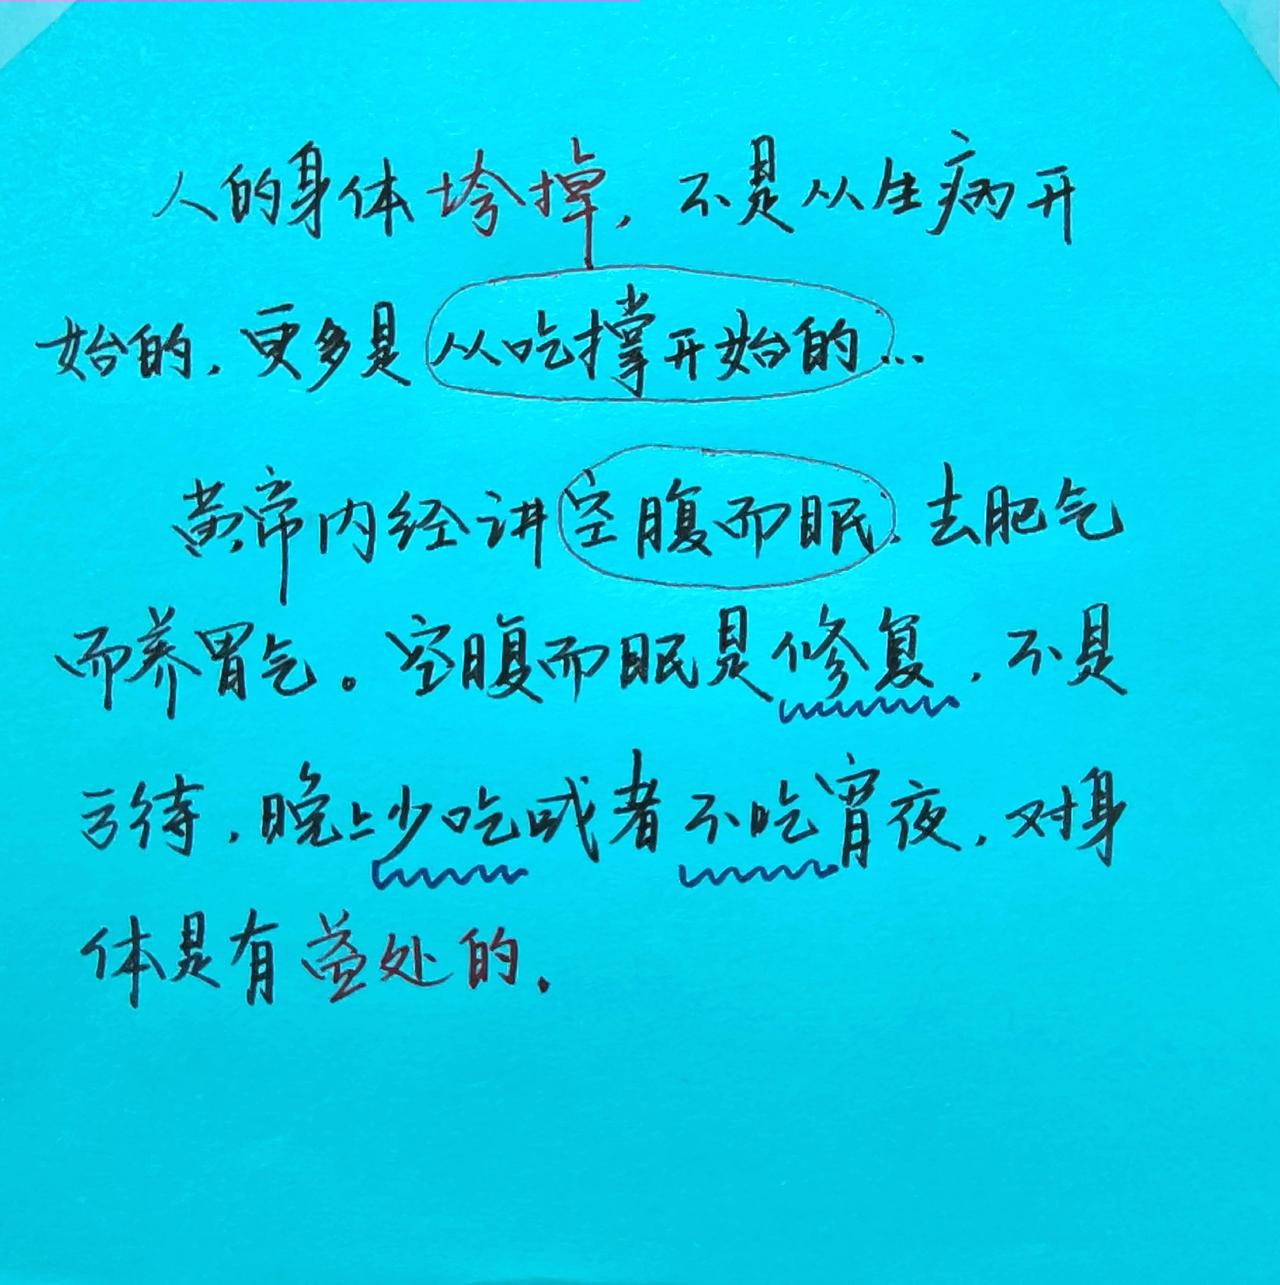 人的身体垮掉，不是从生病开
始的，更多是从吃撑开始的…
黄帝内经讲空腹而眠，去肥气
而养胃气。空腹而眠是修复，不是
亏待，晚上少吃或者不吃宵夜，对身
体是有益处的.